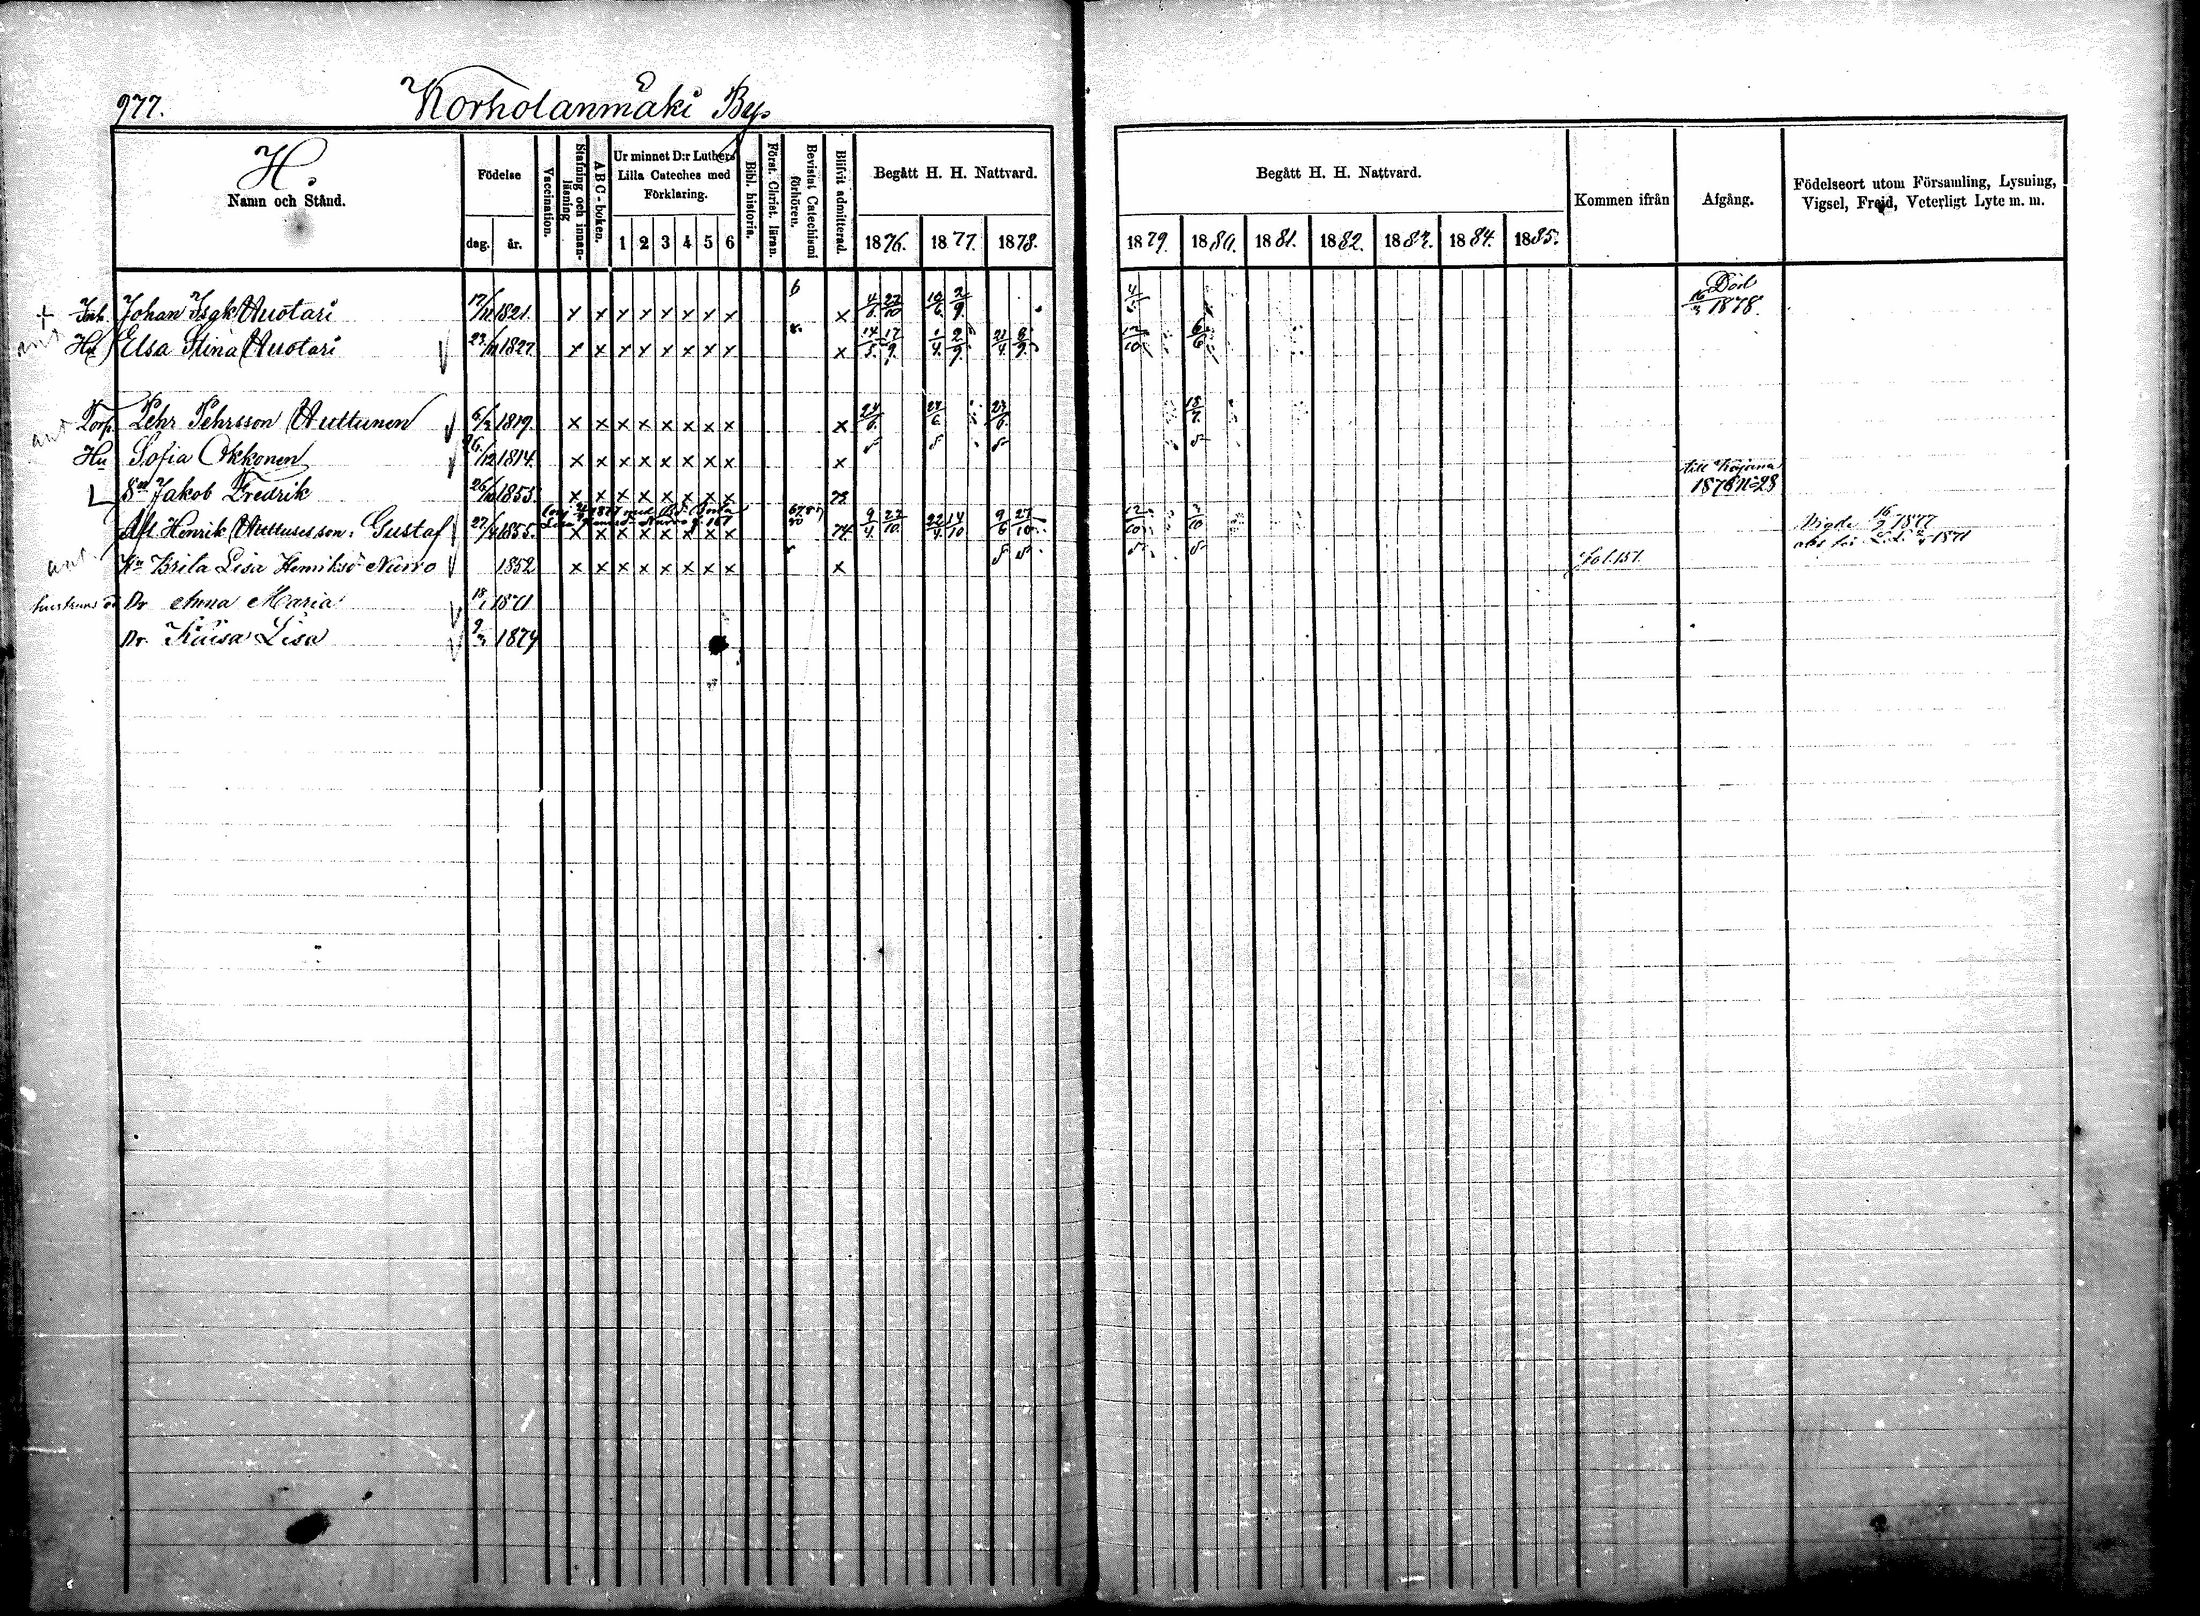 977. Korholanmäki By.
H.
Namn och Stånd.
Födelse
dag. år.
Vaccination.
Stafning och innanläsning
ABC-boken.
Ur minnet D:r Luthers Lilla Cateches med Förklaring.
1 2 3 4 5 6
Bibl. historia.
Först. Christ. läran.
Bevistat Catechismi förhören.
Blifvit admitterad.
Begått H. H. Nattvard.
1876. 1877. 1878.
Begått H. H. Nattvard.
1879. 1880. 1881. 1882. 1883. 1884. 1885.
Kommen ifrån
Afgång.
Födelseort utom Församling, Lysning, Vigsel, Frejd, Veterligt Lyte m. m.
+ Inh. Johan Isak Huotari 17/11 1821. x x x x x x x x 6 x 4/6 22/10 10/6 2/9 4/5 Död 16/3 1878.
Hu Elsa Stina Huotari 23/11 1827. x x x x x x x x x 14/5 17/9 1/4 2/9 21/4 8/9 12/10 6/6
Torp. Pehr Pehrsson Huttunen 6/2 1819. x x x x x x x x x 24/6 24/6 23/6 18/7
Hu Sofia Okkonen 26/12 1814. x x x x x x x x x
Sn Jakob Fredrik 26/10 1855. x x x x x x x x 73 till Kajana 1876 N:o 28
Afl. Henrik Huttunes son: Gustaf 27/4 1855. x x x x x x x x 74 9/4 22/10 22/4 14/10 9/6 27/10 12/10 3/10 Vigde 16/9 1877
Hu Brita Lisa Henriksd Nurro 1852 x x x x x x x x x fol. 157.
hustruns Dr Anna Maria 18/1 1871
Dr. Kaisa Lisa 9/3 1879